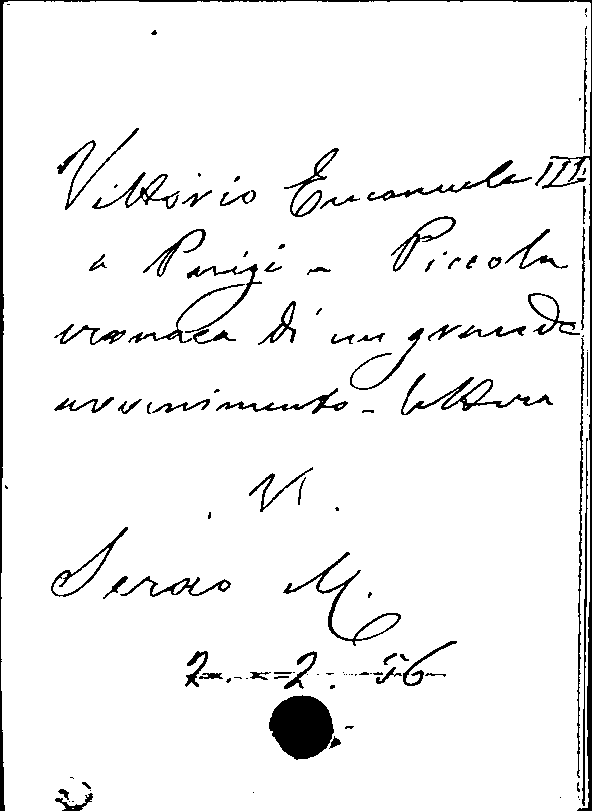 Vittorio Emanuele III
a Parigi - Piccola
cronaca di un grande
avvenimento - lettera
VI.
Serao M.
2. 2. 56